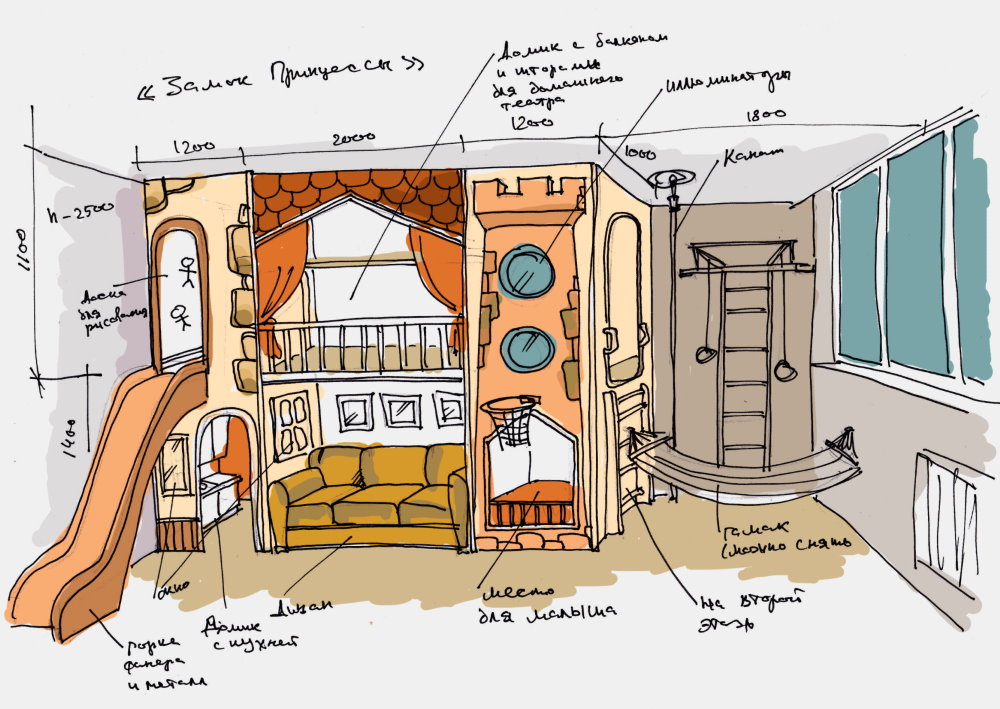 «Замок Принцессы»
Домик с балконом
и шторами
для домашнего
театра
иллюминаторы
1200
2000
1200
1800
1000
Канат
h-2500
1100
Доска
для
рисования
1400
окно
Домик
с кухней
Диван
место
для малыша
гамак
(можно снять
На второй
этаж
горка
фанера
и металл